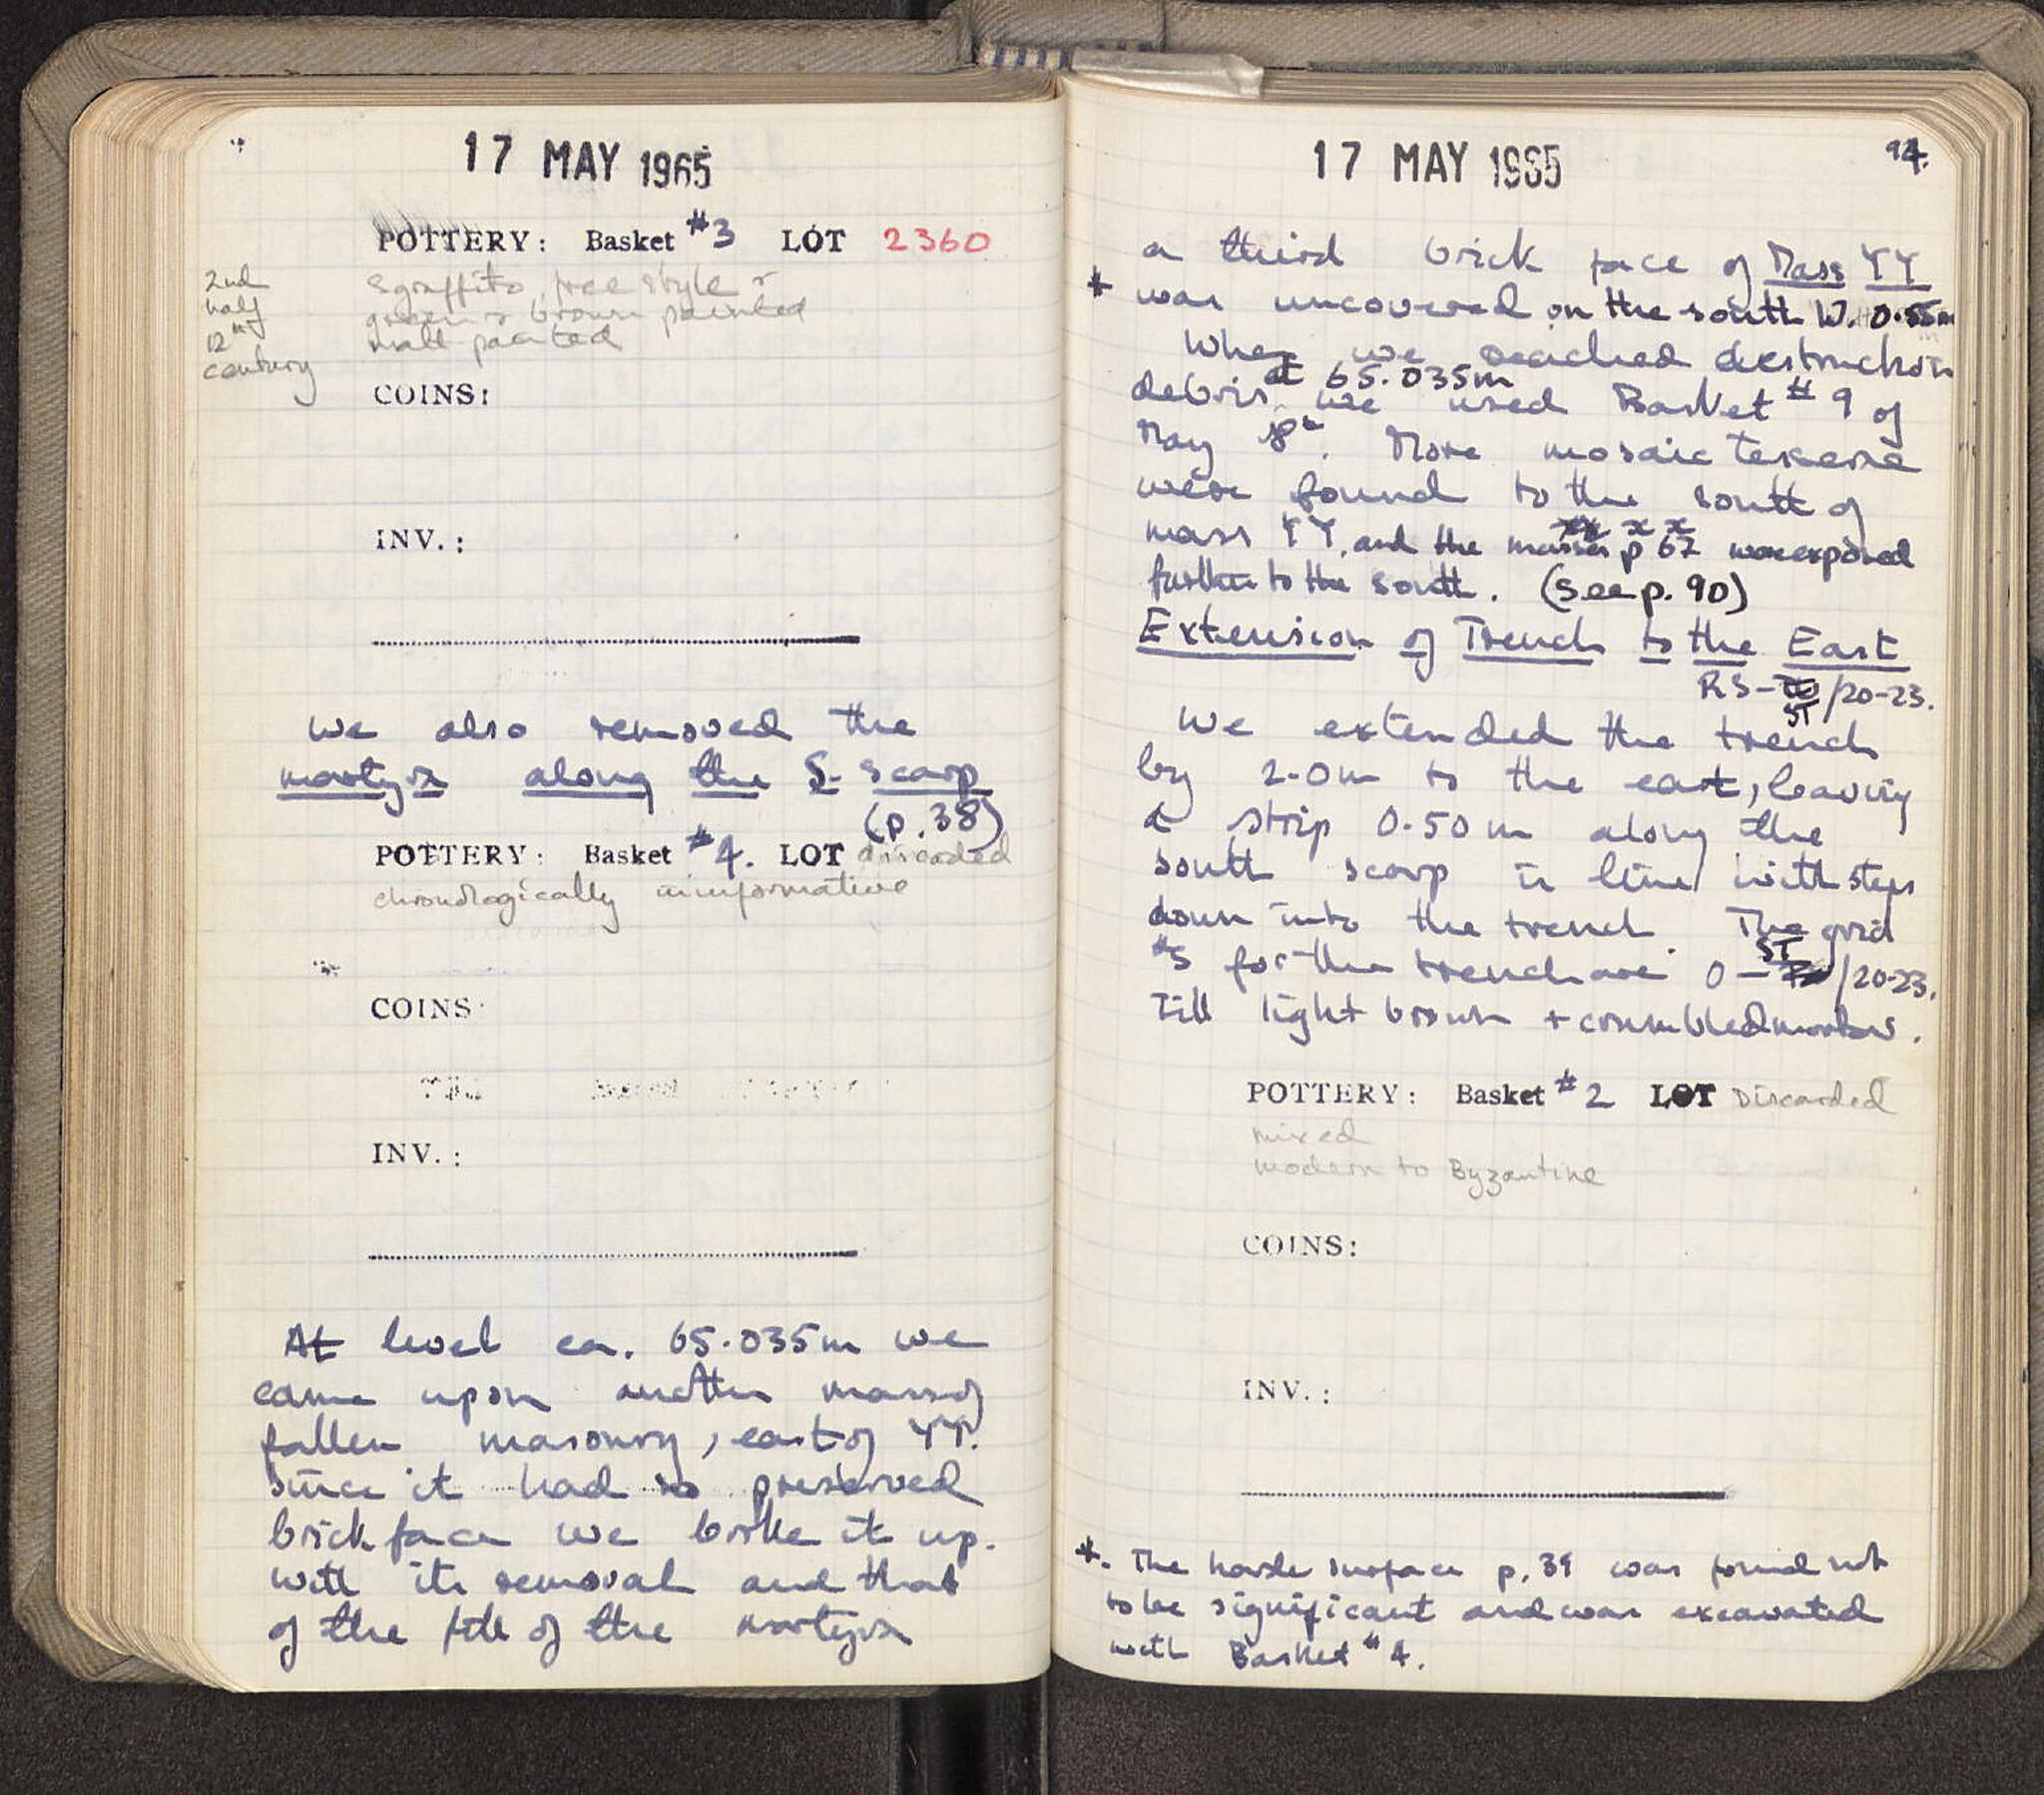 17 MAY 1965
POTTERY: Basket #3 LOT 2360
2nd half 12th century
sgraffito, free style &
green & brown painted
matt painted
COINS:
INV.:
We also removed the
martyra along the S. scarp
(p. 38)
POTTERY: Basket #4. LOT discarded
chronologically uninformative
COINS
INV.:
At level ca. 65.035m we
came upon another mass of
fallen masonry, east of YY.
Since it had no preserved
brick face we broke it up.
With its removal and that
of the fill of the martyra
17 MAY 1965
94.
a third brick face of Mass YY
* was uncovered on the south W. 0.55m
When we reached destruction
debris at 65.035m we used Basket #9 of
May 8. More mosaic tesserae
were found to the south of
mass YY, and the masses p 67 were exposed
further to the south. (see p. 90)
Extension of Trench to the East
RS-ST/20-23.
We extended the trench
by 2.0m to the east, leaving
a strip 0.50m along the
south scarp in line with steps
down into the trench. The grid
#s for the trench are O-ST/20-23.
Fill light brown + crumbled mortar.
POTTERY: Basket #2 LOT Discarded
mixed
modern to Byzantine
COINS:
INV.:
*. The hard surface p. 39 was found not
to be significant and was excavated
with Basket #4.